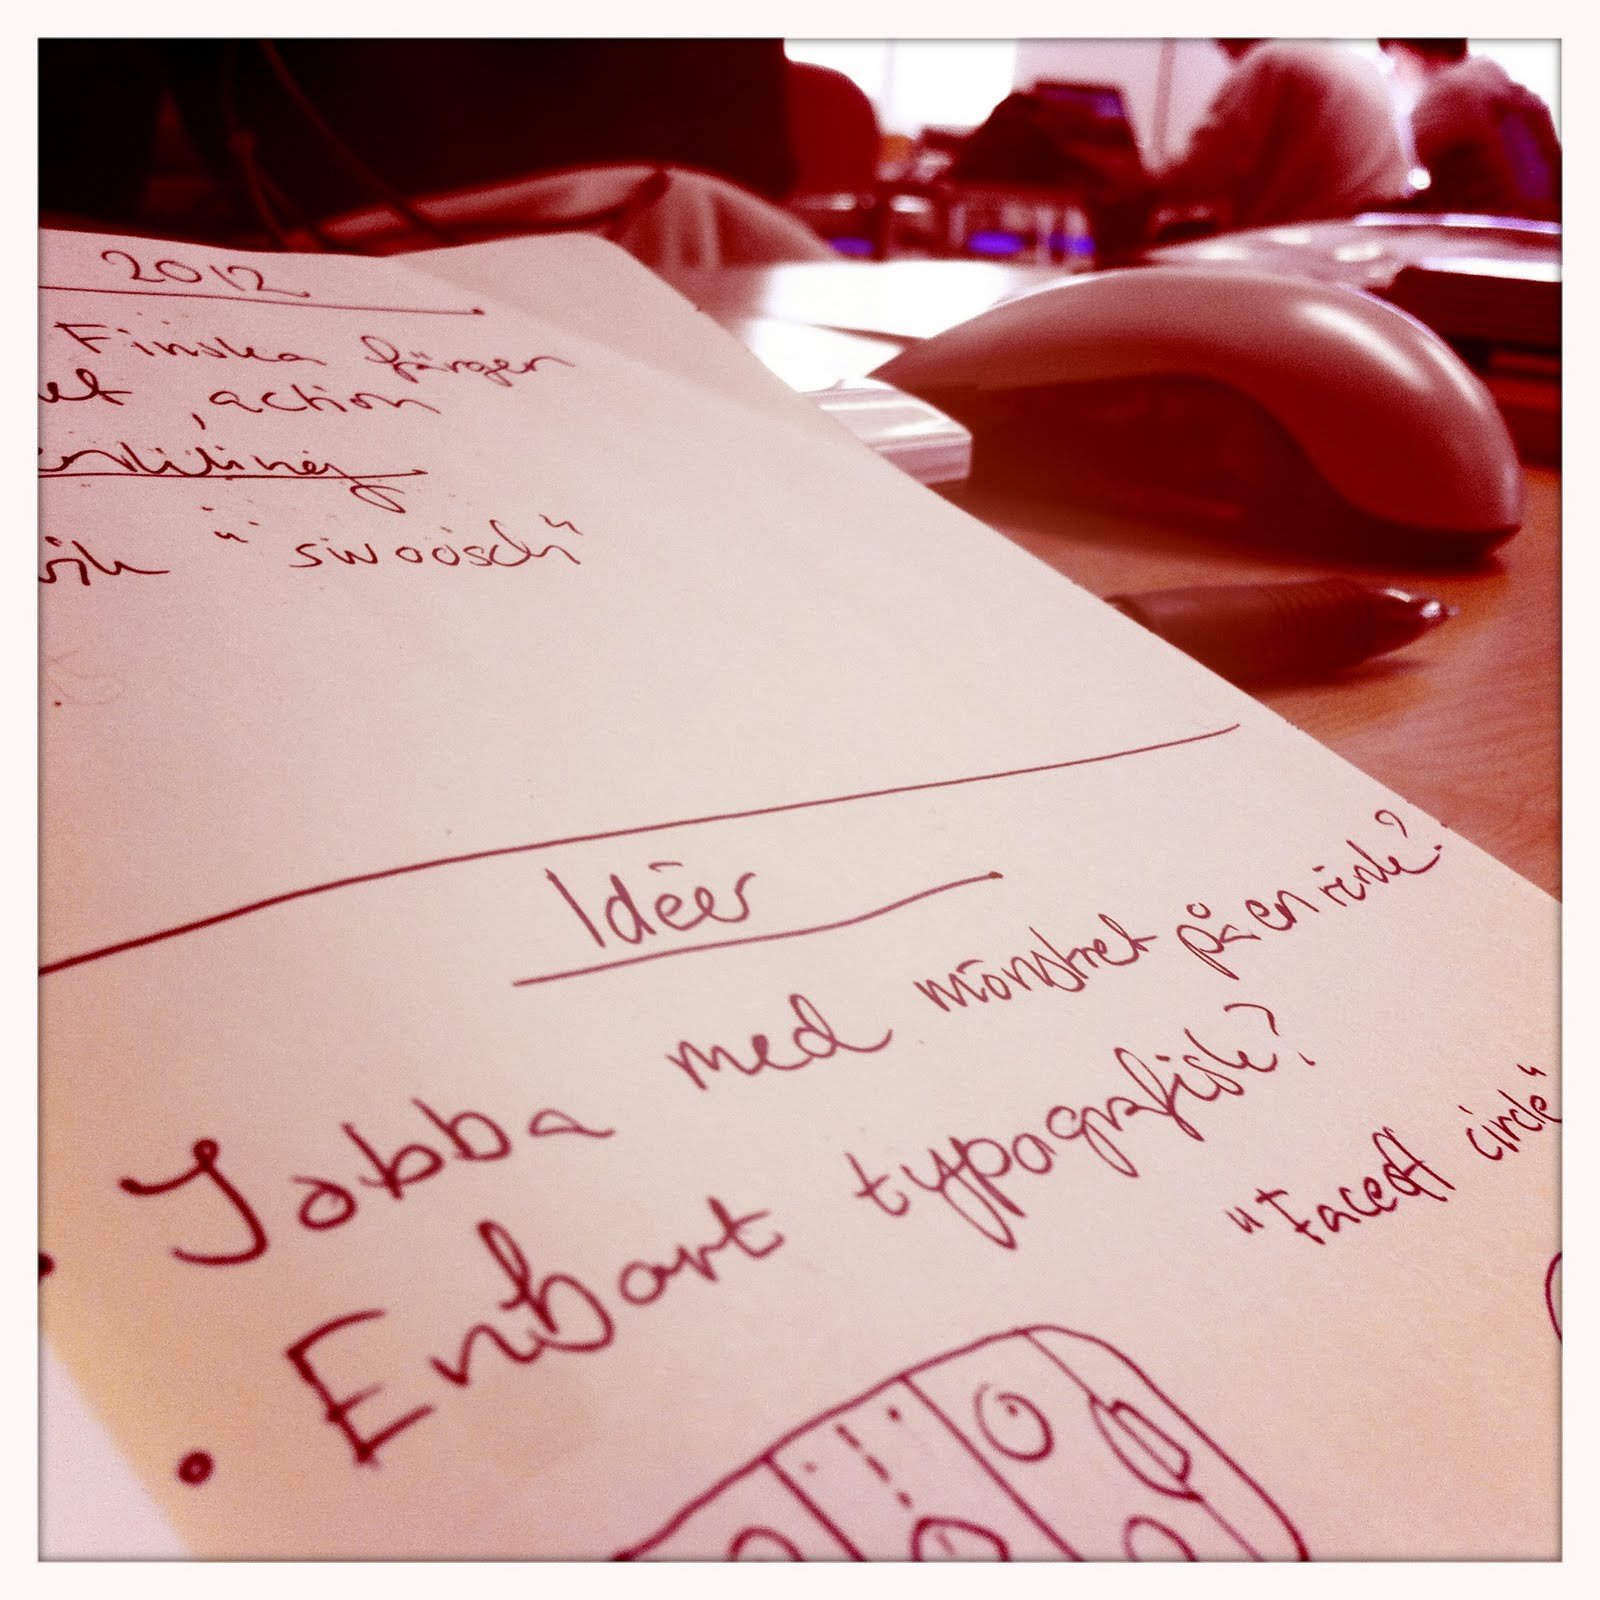 2012
Finska färger
, action
"swoosch"
Idéer
Jobba med mönstret på en rink?
Enbart typografisk?
"Faceoff circle"